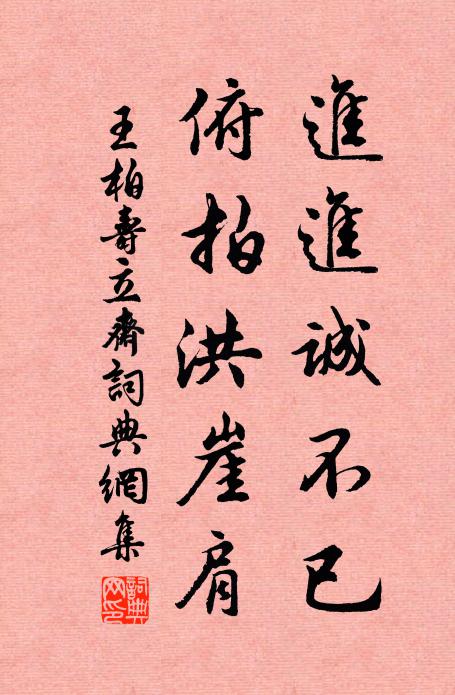 進進誠不已
俯拍洪崖肩
王柏壽立齋詞典網集
詞典網印